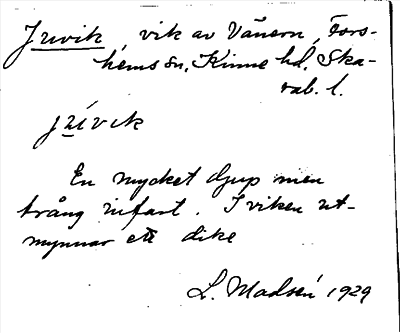 Jrivik, vik av Vänern, Fors-
hems sn, Kinne hd, Ska-
rab. l.
En mycket djup men
trång infart. I viken ut-
mynnar ett dike
L. Madsén 1929